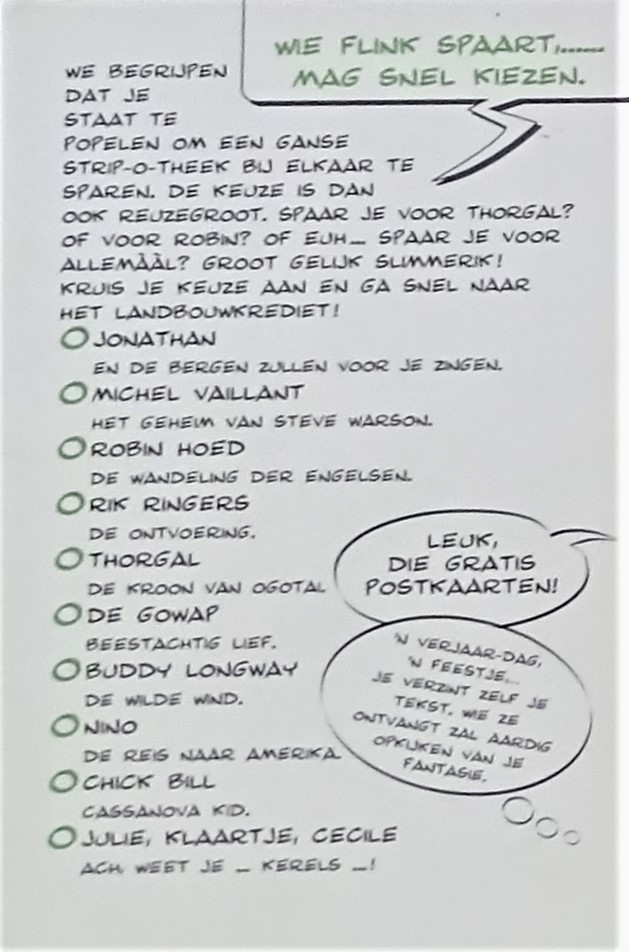 WIE FLINK SPAART,......
MAG SNEL KIEZEN.
WE BEGRIJPEN
DAT JE
STAAT TE
POPELEN OM EEN GANSE
STRIP-O-THEEK BIJ ELKAAR TE
SPAREN. DE KEUZE IS DAN
OOK REUZEGROOT. SPAAR JE VOOR THORGAL?
OF VOOR ROBIN? OF EUH... SPAAR JE VOOR
ALLEMÀÀL? GROOT GELIJK SLIMMERIK!
KRUIS JE KEUZE AAN EN GA SNEL NAAR
HET LANDBOUWKREDIET!
JONATHAN
EN DE BERGEN ZULLEN VOOR JE ZINGEN.
MICHEL VAILLANT
HET GEHEIM VAN STEVE WARSON.
ROBIN HOED
DE WANDELING DER ENGELSEN.
RIK RINGERS
DE ONTVOERING.
THORGAL
DE KROON VAN OGOTAI.
DE GOWAP
BEESTACHTIG LIEF.
BUDDY LONGWAY
DE WILDE WIND.
NINO
DE REIS NAAR AMERIKA.
CHICK BILL
CASSANOVA KID.
JULIE, KLAARTJE, CECILE
ACH, WEET JE ... KERELS ...!
LEUK,
DIE GRATIS
POSTKAARTEN!
'N VERJAAR-DAG,
'N FEESTJE,...
JE VERZINT ZELF JE
TEKST. WIE ZE
ONTVANGT ZAL AARDIG
OPKIJKEN VAN JE
FANTASIE.